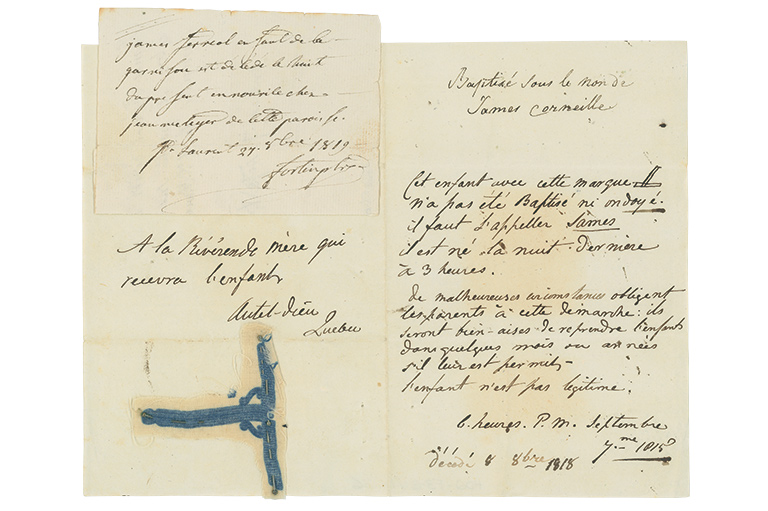 james ferreol enfant de la
garnison est décédé le huit
du present en nourice chez
jean metayer de cette paroisse.
St Laurent 27. 8bre 1819
fortin ptre
A la Révérende mère qui
recevra l'enfant
Autel-dieu
Quebec
Baptisé sous le nom de
James Corneille
Cet enfant avec cette marque #
n'a pas été Baptisé ni ondoyé.
il faut l'appeller James
il est né la nuit dernière
à 3 heures.
de malheureuses circonstances obligent
les parents à cette demarche: ils
seront bien-aises de reprendre l'enfant
dans quelques mois ou années
s'il leur est permit,
l'enfant n'est pas legitime.
6. heures. P. M. Septembre
7me 1818
décédé 8 8bre 1818